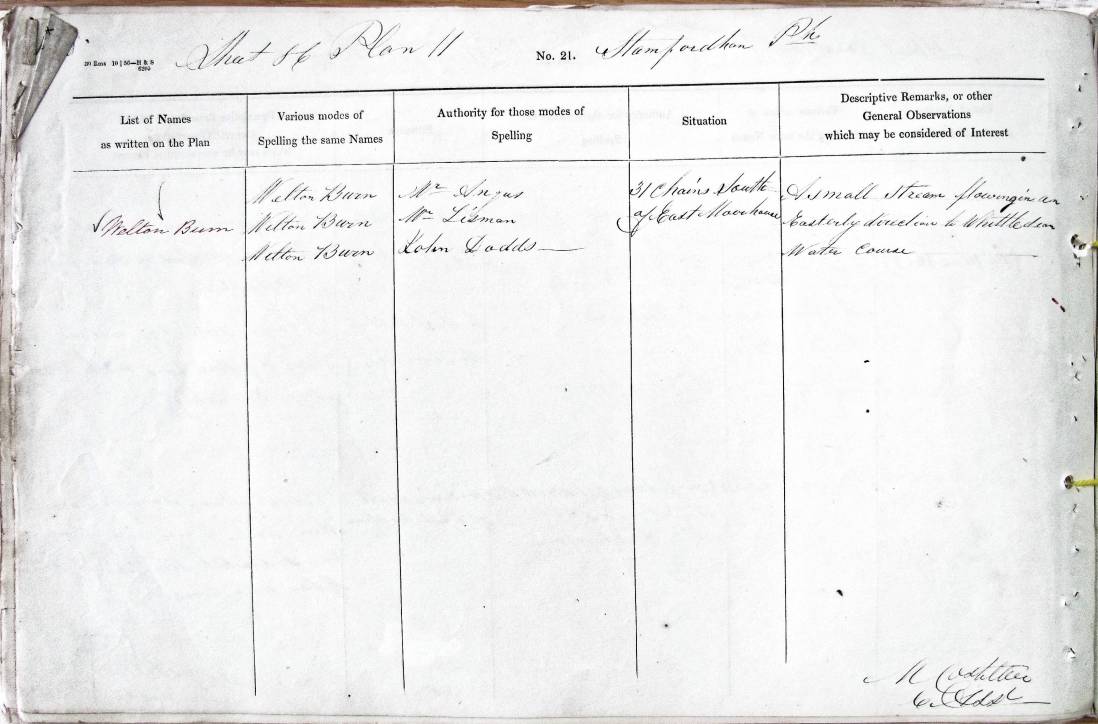 30 Rms 10 | 56—H & S
6205
Sheet 86 Plan 11
No. 21.
Stamfordham Ph
List of Names
as written on the Plan
Various modes of
Spelling the same Names
Authority for those modes of
Spelling
Situation
Descriptive Remarks, or other
General Observations
which may be considered of Interest
Welton Burn
Welton Burn
Welton Burn
Welton Burn
Mr Angus
Wm Lisman
John Dodds
31 Chains South
of East Moorhouse
A small stream flowing in an
Easterly direction to Whittledean
Water Course